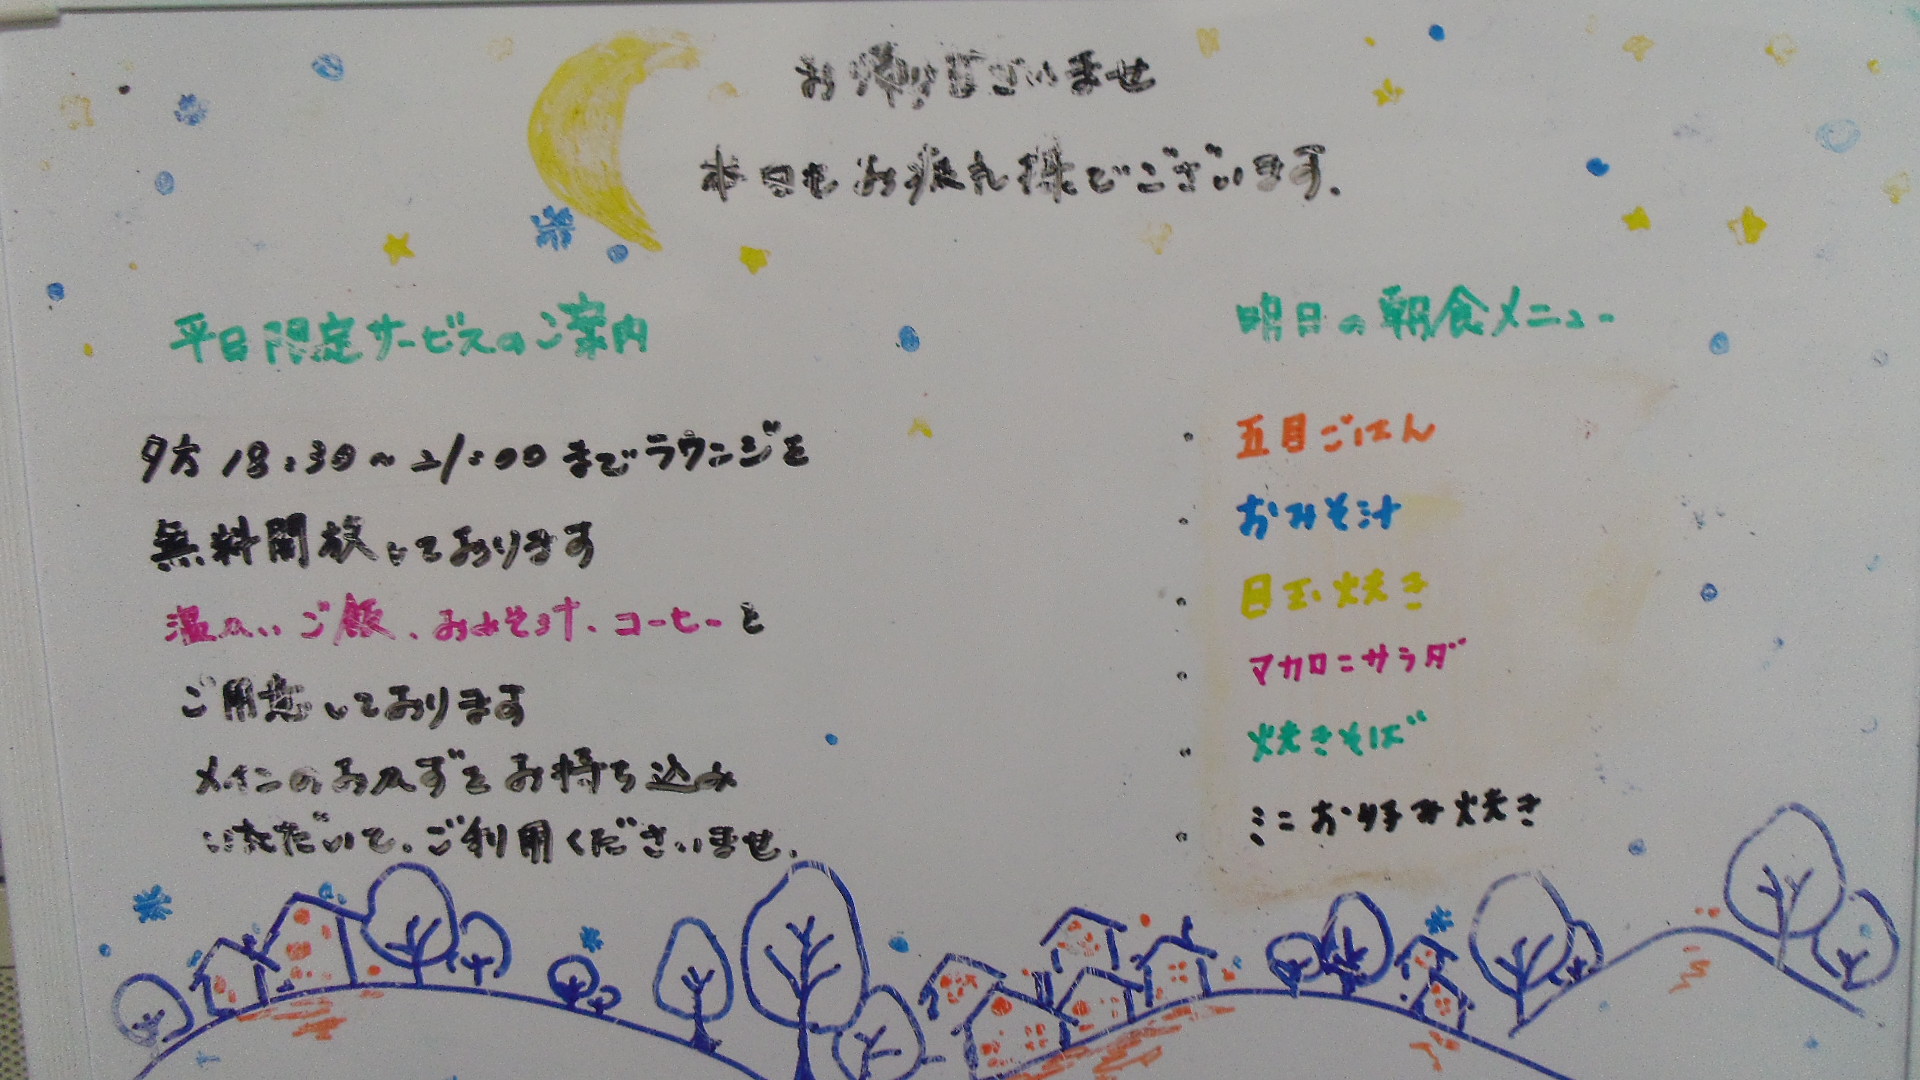 お帰りなさいませ
本日もお疲れ様でございます.
平日限定サービスのご案内
夕方 18:30~21:00 までラウンジを
無料開放しております
温かいご飯、おみそ汁、コーヒーと
ご用意しております
メインのおかずをお持ち込み
いただいて、ご利用くださいませ.
明日の朝食メニュー
・五目ごはん
・おみそ汁
・目玉焼き
・マカロニサラダ
・焼きそば
・ミニお好み焼き